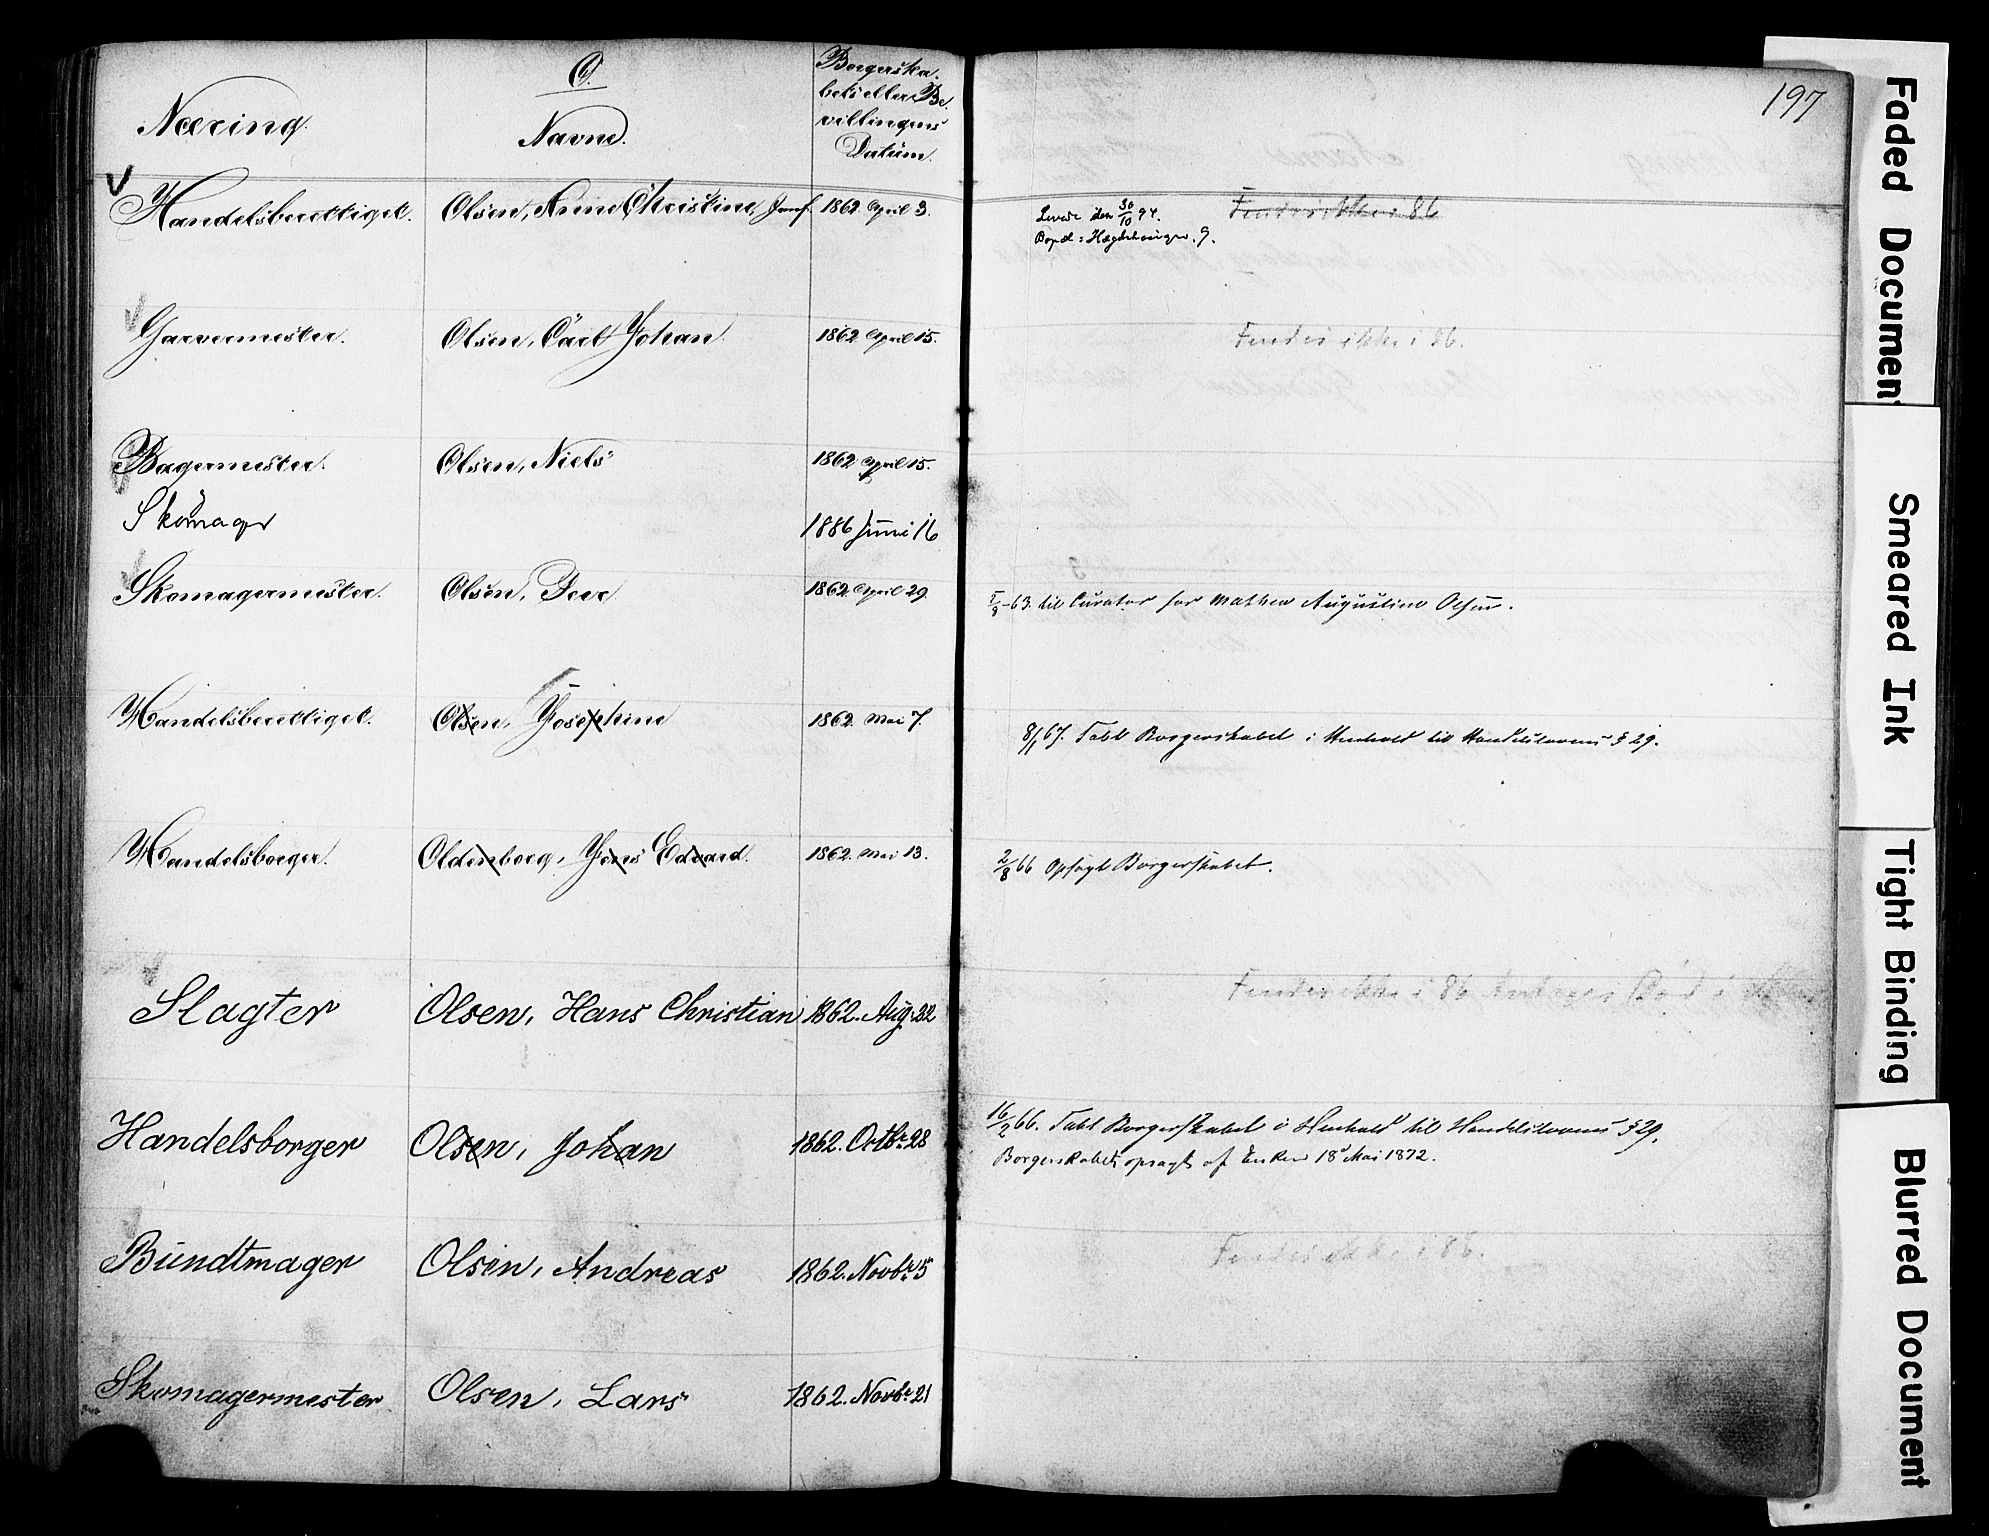 197
O.
Næring.
Navne.
Borgerska-
bets eller Be-
villingens
Datum.
Handelsberettiget. Olsen, Anne Christine, Jomf. 1862 April 3.
Levede den 30/10 94. Findes ikke i 86
Bopæl: 9.
Garvermester. Olsen, Carl Johan. 1862 April 15. Findes ikke i 86.
Bagermester. Olsen, Niels 1862 April 15.
Skomager 1886 Juni 16
Skomagermester. Olsen, Peer 1862 April 29. 5/8-63. til Curator for Mathea Augustine Olsen.
Handelsberettiget. Olsen, Josephine 1862 Mai 7. 8/1 67. Tabt Borgerskabet i Henhold til Handelslovens § 29.
Handelsborger. Oldenborg, Jens Edvard. 1862 Mai 13. 2/8 66 Opsagt Borgerskabet.
Slagter Olsen, Hans Christian 1862. Aug. 22 Findes ikke i 86
Handelsborger Olsen, Johan 1862. Octbr. 28 16/2 66. Tabt Borgerskabet i Henhold til Handelslovens § 29.
Borgerskabet opsagt af Enken 18de Mai 1872.
Bundtmager Olsen, Andreas 1862. Novbr. 5 Findes ikke i 86.
Skomagermester Olsen, Lars 1862. Novbr. 21
Faded Document
Smeared Ink
Tight Binding
Blurred Document